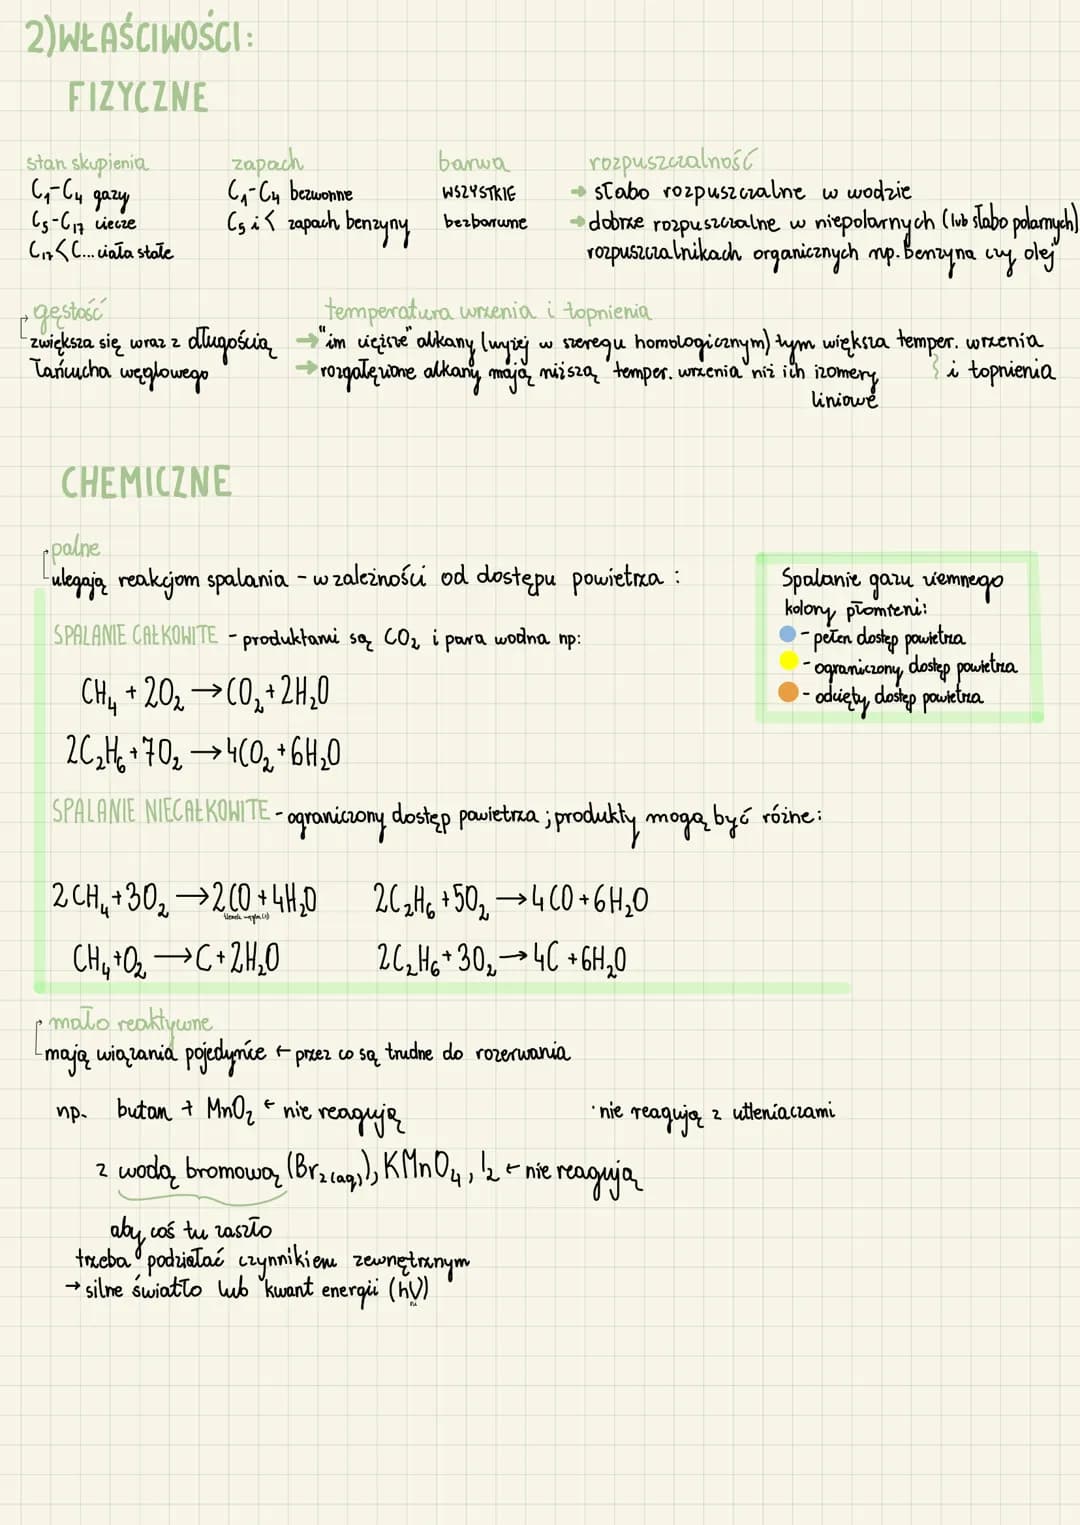 2)WŁAŚCIWOŚCI:
FIZYCZNE
stan skupienia
C₁-C₄ gazy
C₅-C₁₇ ciecze
C₁₇<C... ciała stałe
zapach
C₁-C₄ bezwonne
C₅ i < zapach benzyny
barwa
WSZYSTKIE
bezbarwne
rozpuszczalność
→ słabo rozpuszczalne w wodzie
→ dobrze rozpuszczalne w niepolarnych (lub słabo polarnych)
rozpuszczalnikach organicznych np. benzyna czy olej
gęstość
zwiększa się wraz z długością
łańcucha węglowego
temperatura wrzenia i topnienia
→ "im cięższe" alkany (wyżej w szeregu homologicznym) tym większa temper. wrzenia
i topnienia
→ rozgałęzione alkany mają niższą temper. wrzenia niż ich izomery
liniowe
CHEMICZNE
palne
ulegają reakcjom spalania - w zależności od dostępu powietrza :
SPALANIE CAŁKOWITE - produktami są CO₂ i para wodna np:
CH₄ + 2O₂ → CO₂ + 2H₂O
2C₂H₆ + 7O₂ → 4CO₂ + 6H₂O
Spalanie gazu ziemnego
kolory płomieni:
- pełen dostęp powietrza
- ograniczony dostęp powietrza
- odcięty dostęp powietrza
SPALANIE NIECAŁKOWITE - ograniczony dostęp powietrza ; produkty mogą być różne:
2CH₄ + 3O₂ → 2CO + 4H₂O 2C₂H₆ + 5O₂ → 4CO + 6H₂O
CH₄ + O₂ → C + 2H₂O 2C₂H₆ + 3O₂ → 4C + 6H₂O
mało reaktywne
mają wiązania pojedyncze ← przez co są trudne do rozerwania
np. butan + MnO₂ ← nie reagują · nie reagują z utleniaczami
z wodą bromową (Br₂(aq)), KMnO₄, I₂ ← nie reagują
aby coś tu zaszło
trzeba podziałać czynnikiem zewnętrznym
→ silne światło lub kwant energii (hν)
ni